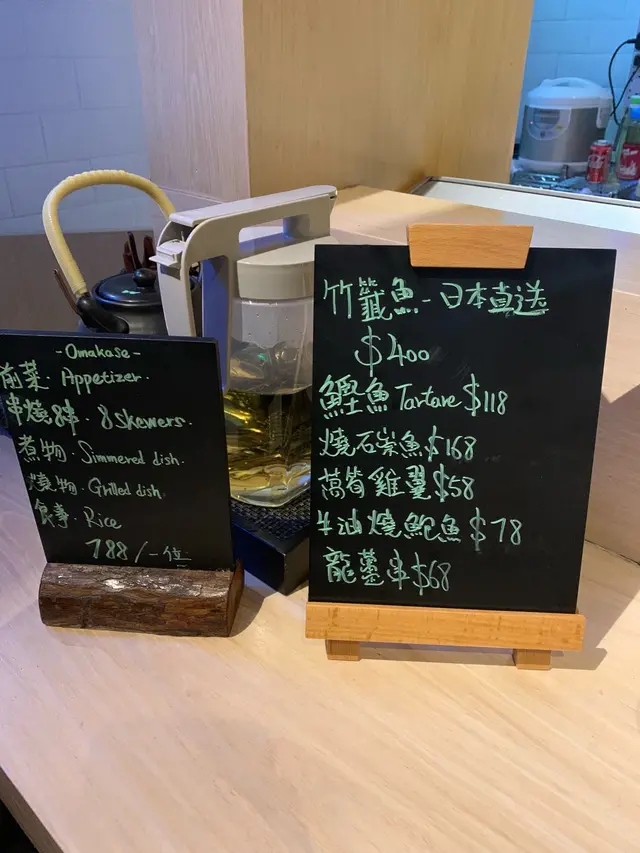 -Omakase-
前菜 Appetizer.
串燒8串・8 Skewers.
煮物・Simmered dish.
燒物・Grilled dish
食事・Rice
788/-位
竹籤魚-日本直送
$400
鰹魚 Tartare $118
燒石崇魚 $168
萵筍雞翼 $58
牛油燒鮑魚 $78
龍躉串 $68